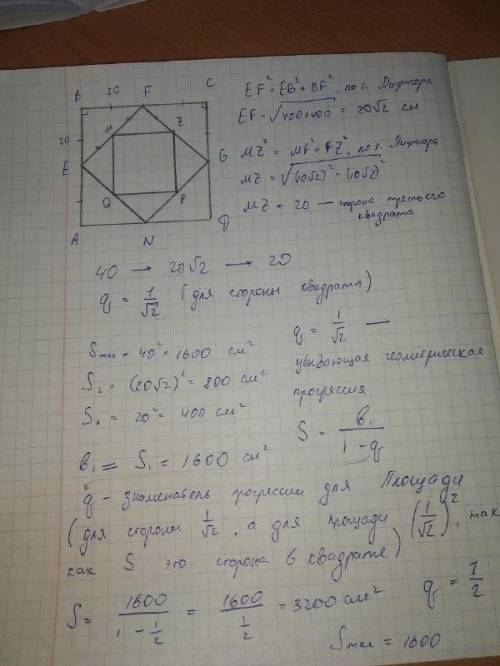 B 20 F C
20 M Z
E G
Q P
A N D
EF² = EB² + BF², по т. Пифагора
EF = √400+400 = 20√2 см
MZ² = MF² + FZ², по т. Пифагора
MZ = √(10√2)² + (10√2)²
MZ = 20 — сторона третьего
квадрата
40 → 20√2 → 20
q = 1/√2 (для стороны квадрата)
Smax = 40² = 1600 см²
q = 1/√2 —
S₂ = (20√2)² = 800 см²
убывающая геометрическая
прогрессия
= 20² = 400 см²
S = b₁/1-q
b₁ = S₁ = 1600 см²
q - знаменатель прогрессии для Площади
(для стороны 1/√2, а для площади (1/√2)², так
как S это сторона в квадрате)
q = 1/2
S = 1600/1-1/2 = 1600/1/2 = 3200 см²
Smax = 1600